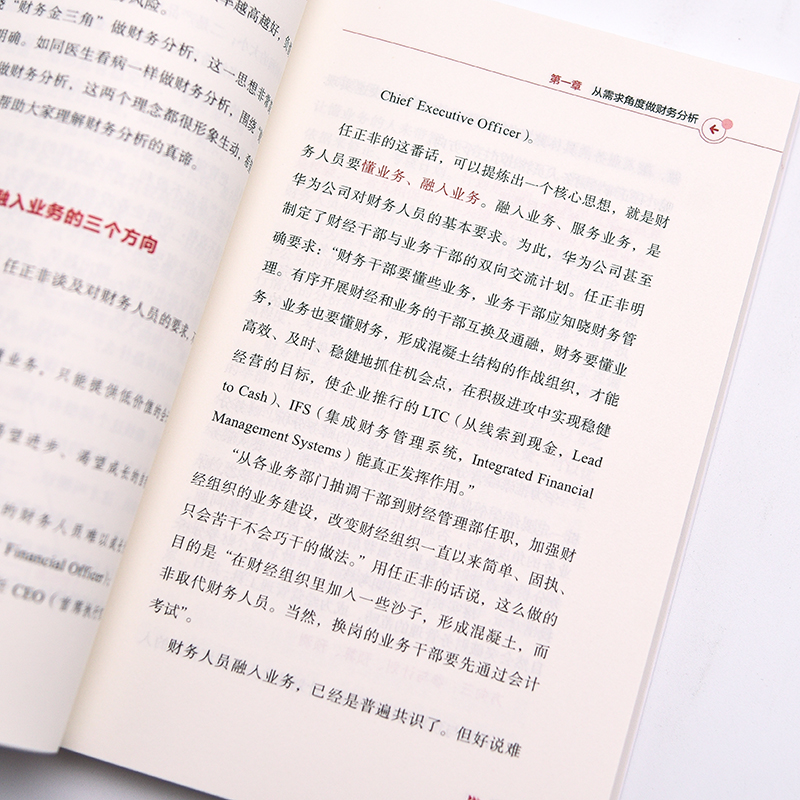 风险。
年越高越好，负
“财务金三角”做财务分析，这一思想非常
明确。如同医生看病一样做财务分析，围绕“
做财务分析，这两个理念都很形象生动，
帮助大家理解财务分析的真谛。
融入业务的三个方向
任正非谈及对财务人员的要求，
业务，只能提供低价值的
望进步、渴望成长的
的财务人员难以
Financial Officer）
CEO（首席执行
第一章 从需求角度做财务分析
Chief Executive Officer）。
任正非的这番话，可以提炼出一个核心思想，就是财
务人员要懂业务、融入业务。融入业务、服务业务，是
华为公司对财务人员的基本要求。为此，华为公司甚至
制定了财经干部与业务干部的双向交流计划。任正非明
确要求：“财务干部要懂些业务，业务干部应知晓财务管
理。有序开展财经和业务的干部互换及通融，财务要懂业
务，业务也要懂财务，形成混凝土结构的作战组织，才能
高效、及时、稳健地抓住机会点，在积极进攻中实现稳健
经营的目标，使企业推行的 LTC（从线索到现金，Lead
to Cash）、IFS（集成财务管理系统，Integrated Financial
Management Systems）能真正发挥作用。”
“从各业务部门抽调干部到财经管理部任职，加强财
经组织的业务建设，改变财经组织一直以来简单、固执、
只会苦干不会巧干的做法。”用任正非的话说，这么做的
目的是“在财经组织里加入一些沙子，形成混凝土，而
非取代财务人员。当然，换岗的业务干部要先通过会计
考试”。
财务人员融入业务，已经是普遍共识了。但好说难